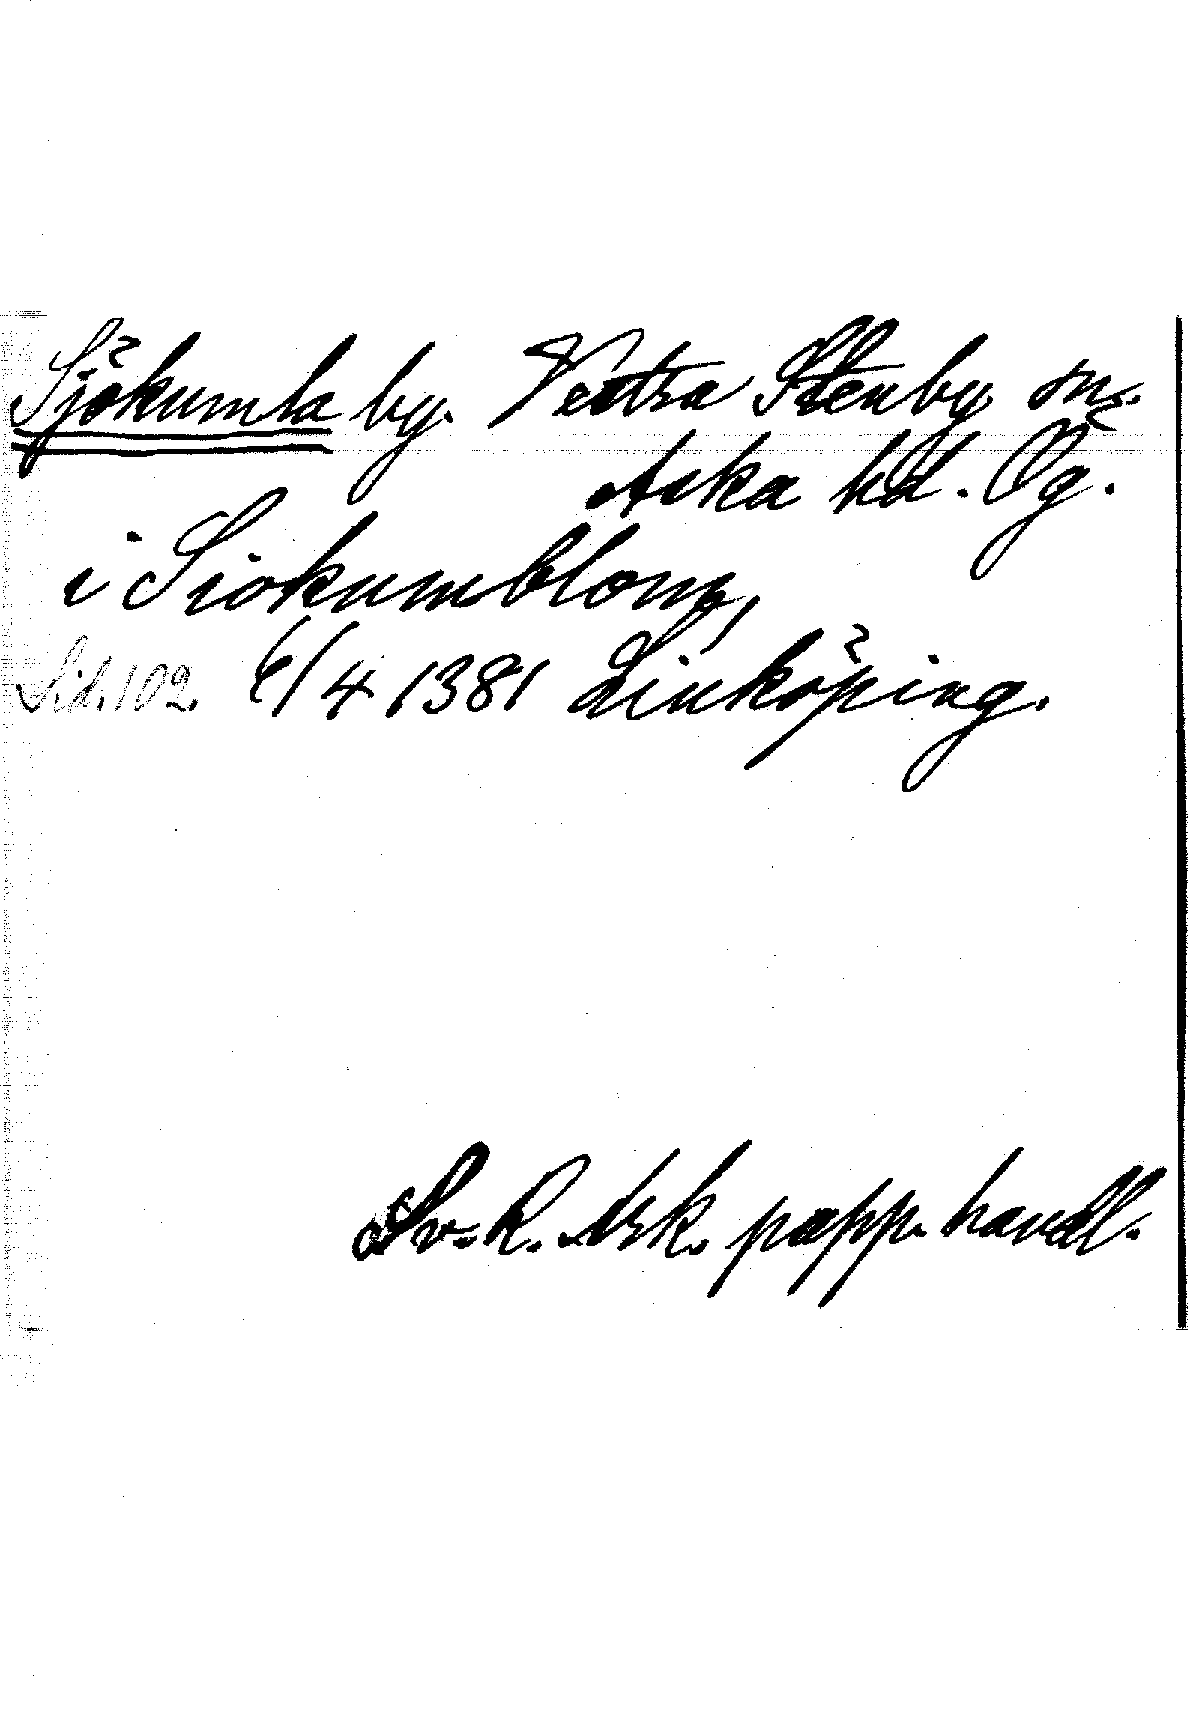 Sjökumla by. Västra Stenby sn.
Aska hd. Ög.
i Siokumblom,
Sid. 102. 6/4 1381 Linköping.
Sv. R. Ark. papp. handl.